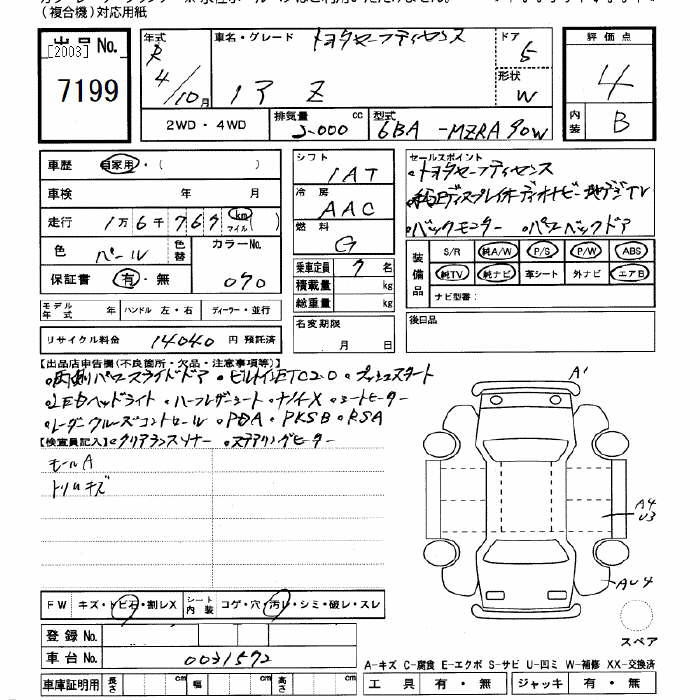 (複合機)対応用紙
出品 No.
[2003]
7199
年式
R
4/10月
車名・グレード
トヨタセーフティセンス
ノア Z
ドア
5
形状
W
評価点
4
内装
B
2WD・4WD
排気量 cc
2-000
型式
6BA -MZRA90W
車歴 自家用・( )
車検 年 月
走行 1万6千767 km マイル( )
色 パール 色替 カラーNo. 070
保証書 有・無
シフト
IAT
冷房
AAC
燃料
G
乗車定員 7名
積載量 kg
総重量 kg
セールスポイント
・トヨタセーフティセンス
・純正ディスプレイオーディオナビ・地デジTV
・バックモニター ・パワーバックドア
装備品
S/R 純A/W P/S P/W ABS
純TV 純ナビ 革シート 外ナビ エアB
ナビ型番:
モデル年式 年 ハンドル 左・右 ディーラー・並行
リサイクル料金 14040 円 預託済
名変期限
月 日
後日品
【出品店申告欄(不良箇所・欠品・注意事項等)】
・両側パワースライドドア ・ビルトインETC2.0 ・プッシュスタート
・LEDヘッドライト ・ハーフレザーシート ・ナノイーX ・シートヒーター
・レーダークルーズコントロール ・PDA ・PKSB ・RSA
【検査員記入】 ・クリアランスソナー ・ステアリングヒーター
モールA
トリムキズ
A'
A4
U3
AU4
FW キズ・トビ石・割レX シート内装 コゲ・穴・汚レ・シミ・破レ・スレ
スペア
登録 No.
車台 No. 0031572
A-キズ C-腐食 E-エクボ S-サビ U-凹ミ W-補修 XX-交換済
車庫証明用 長さ cm 幅 cm 高さ cm
工具 有・無 ジャッキ 有・無